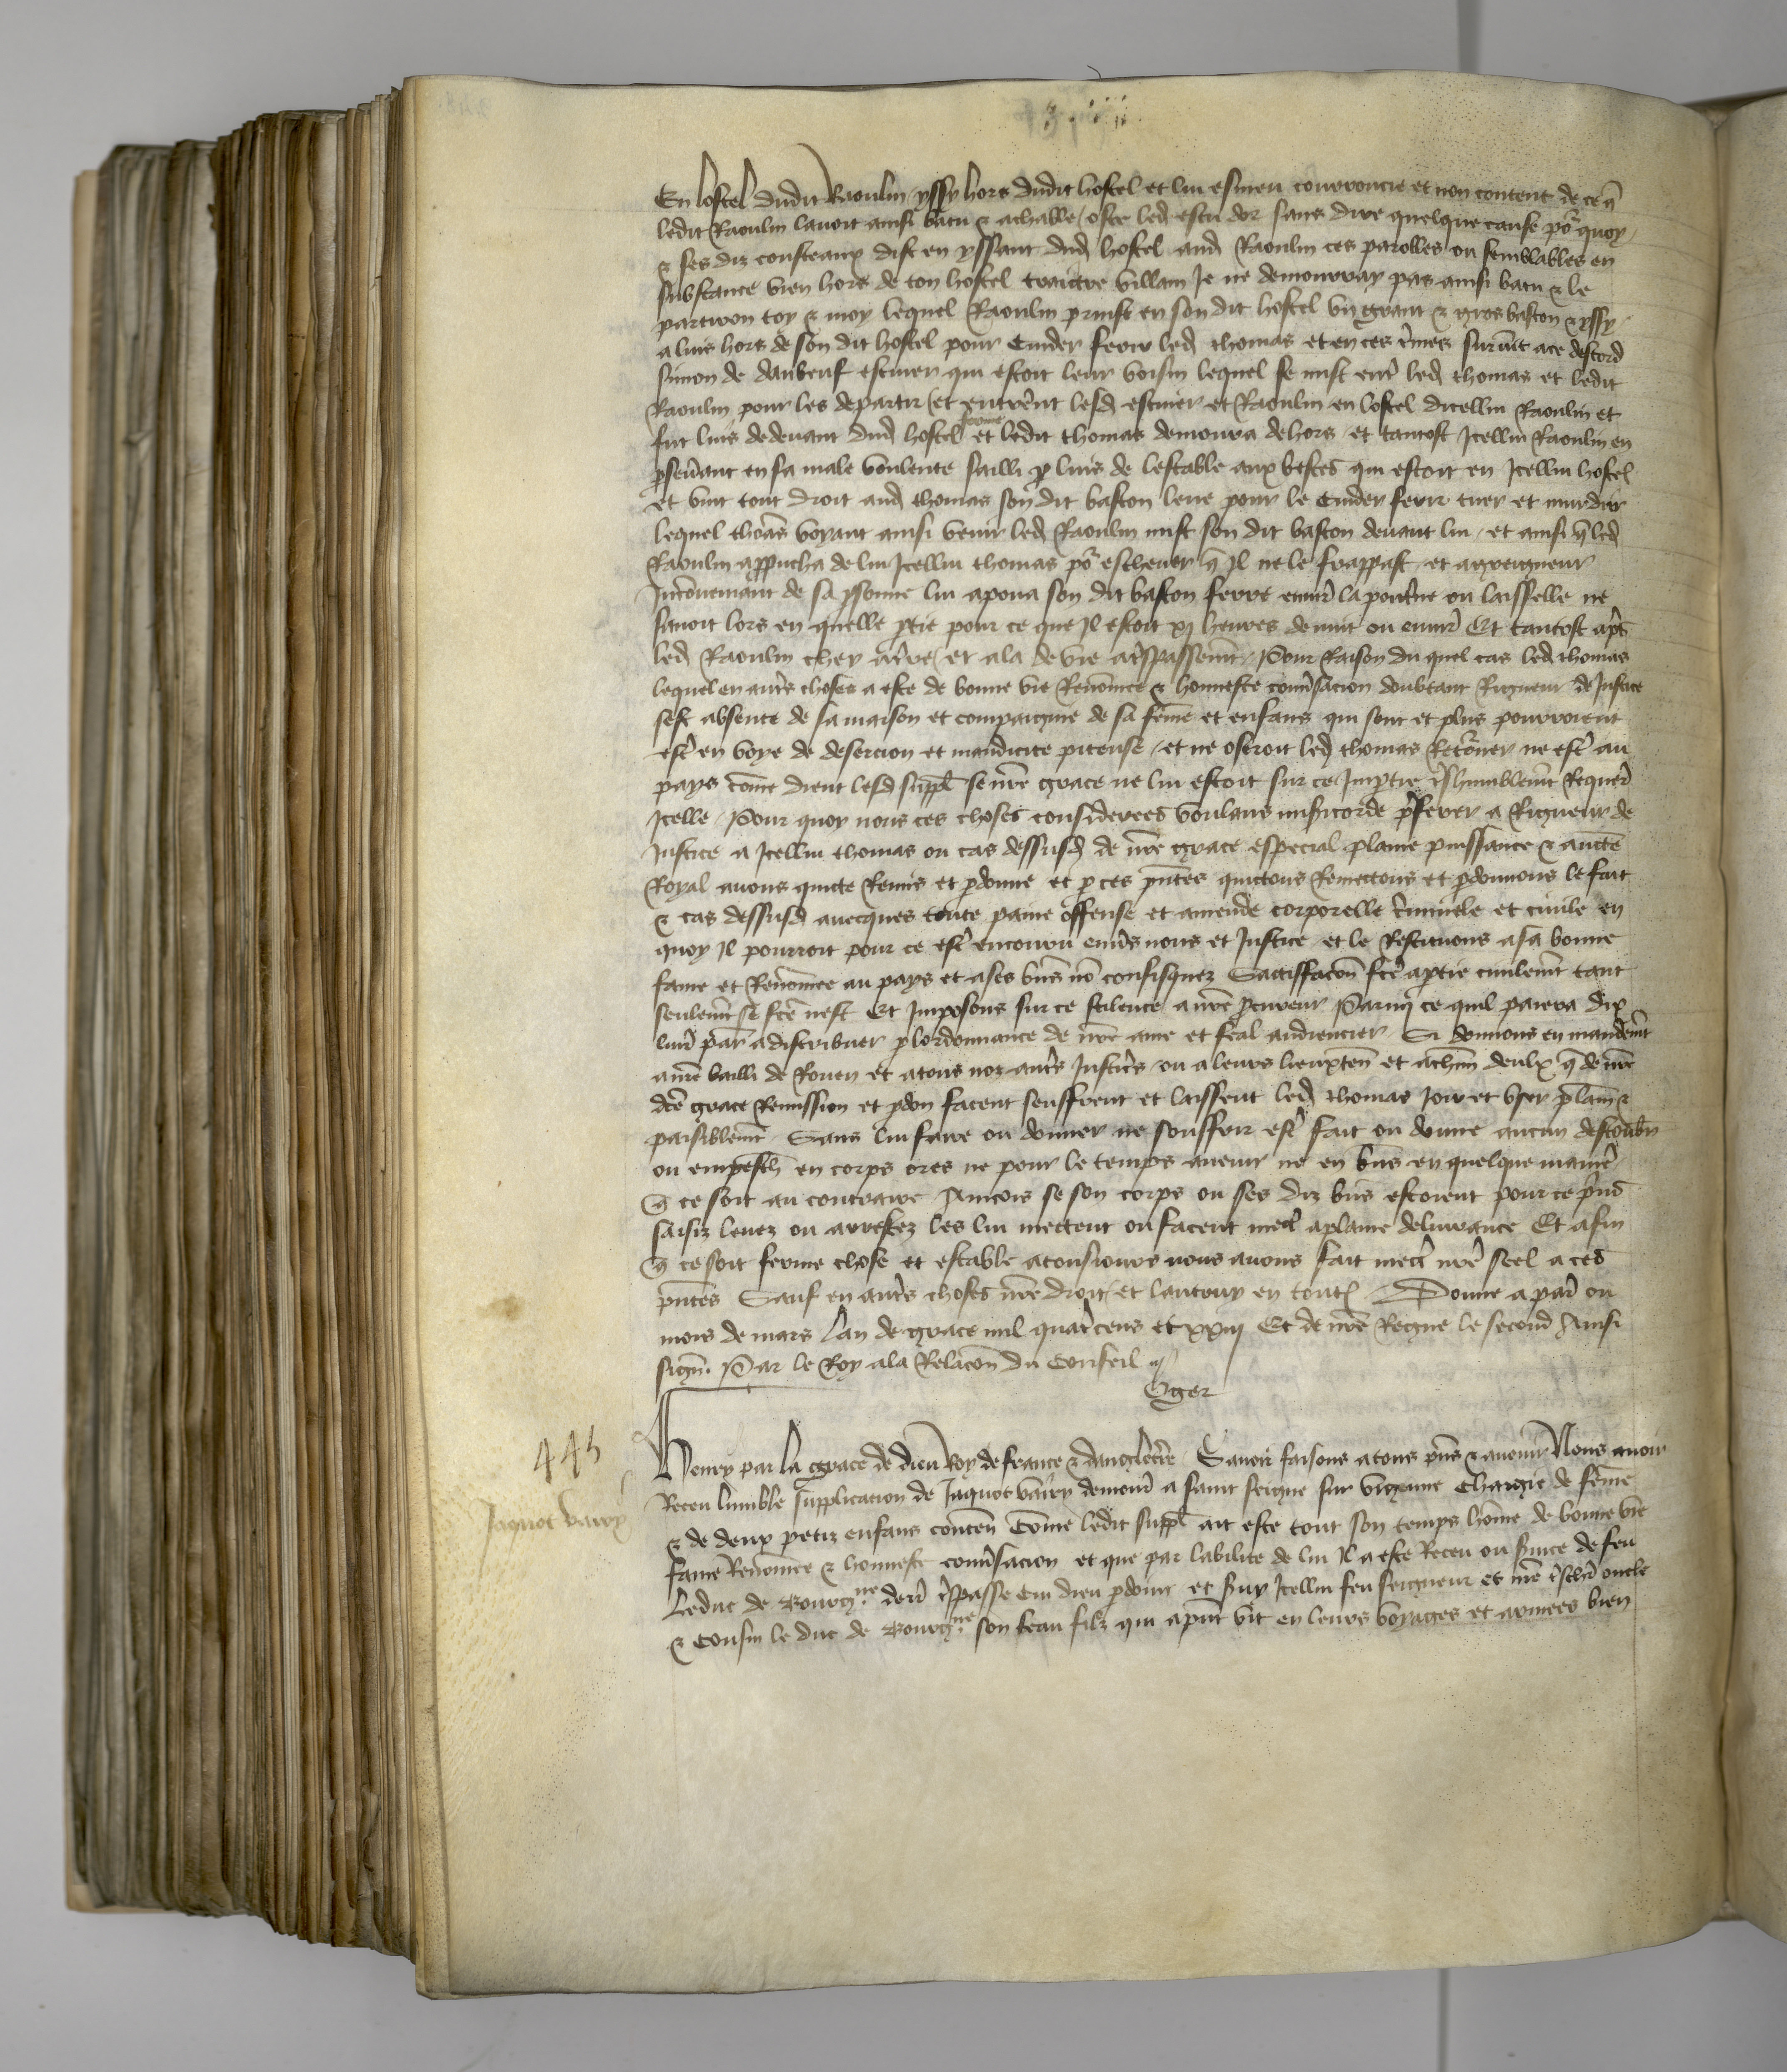 En lostel dudit Raoulin yssy hors dudit hostel et lui esmeu courroucie et non content de ce q̃
ledit Raoulin lavoit ainsi batu & achable oste led escu dor sans dire quelque cause po᷑ quoy
& ses diz cousteaux dist en yssant dud hostel aud Raoulin ces parolles ou semblables en
substance vien hors de ton hostel traictre villain Je ne demourray pas ainsi batu & le
partiron toy & moy lequel Raoulin prinst en son dit hostel vn grant & gros baston & yssy
a luis hors de son dit hostel pour Cuider ferir led thomas et en ces t̃mes suruĩt a ce descord
Simon de daubeuf escuier qui estoit leur voisin lequel se mist ent̃ led thomas et ledit
Raoulin pour les departir et entrẽnt lesd escuier et Raoulin en lostel dicellui Raoulin et
fut luis dedeuant dud hostel ferme et ledit thomas demoura dehors et tantost Icellui Raoulin en
pseũant en sa male voulente sailli p luis de lestable aux bestes qui estoit en Icellui hostel
et vint tout droit aud thomas son dit baston leue pour le Cuider ferir tuer et murdrir
lequel thoãs voyant ainsi venir led Raoulin mist son dit baston deuant lui et ainsi q̃ led
Raoulin appucha de lui Icellui thomas po᷑ escheuer q̃ Il ne le frappast et a greigneur
Incõuenient de sa psonne lui apoua son dit baston ferre enuir̃ la poitrine ou laisselle ne
sauoit lors en quelle ptie pour ce que Il estoit xj heures de nuit ou enuir̃ Et tantost apr̃s
led Raoulin chey at̃re et ala de vie at̃spassemt̃ Pour Raison du quel cas led thomas
lequel en aut̃s choses a este de bonne vie Renõmee & honneste conũsacion doubtant Rigueur de Justice
sest absente de sa maison et compaignie de sa fẽme et enfans qui sont et plus pourroient
est̃ en voye de desercion et mandicite piteuse et ne oseroit led thomas Ret᷑ner ne est̃ au
pays cõme dient lesd suppl se nr̃e grace ne lui estoit sur ce Imptie t̃shumblemt̃ Requer̃
Icelle Pour quoy nous ces choses considerees voulans misicorde p̃ferer a Rigueur de
Justice a Icellui thomas ou cas dessusd de nr̃e grace especial plaine puissance & aucte
Royal auons quicte Remis et pdonne et p ces pñtes quictons Remectons et pdonnons le fait
& cas dessusd auecques toute paine offense et amende corporelle c̃minele et ciuile en
quoy Il pourroit pour ce est̃ encouru enũs nous et Justice et le Restituons a sa bonne
fame et Renõmee au pays et a ses bñs nõ confisquez Sattisfacõn fcẽ a ptie ciuilemt̃ tant
seulemt̃ se fcẽ nest Et Imposons sur ce scilence a nr̃e pcureur Parmi ce quil paiera dix
liur̃ par̃ a distribuer p lordonnance de nr̃e ame et feal audiencier Si donnons en mandemt̃
a nr̃e bailli de Rouen et a tous noz aut̃s Justic̃s ou a leurs lieuxteñ et a chũn deulx q̃ de nr̃e
dcẽ grace Remission et pdon facent seuffrent et laissent led thomas Joir et vser plaiñ &
paisiblemt̃ Sans lui faire ou donner ne souffrir est̃ fait ou donne aucun destourb
ou empesch en corps ores ne pour le temps auenir ne en bñs en quelque manier̃
q̃ ce soit au contraire Aincois se son corps ou ses diz bñs estoient pour ce pñs
saisiz leuez ou arrestez les lui mectent ou facent mect̃ a plaine deliurance Et afin
q̃ ce soit ferme chose et estable a tousiours nous auons fait mect̃ nr̃e seel a ces
pñtes Sauf en aut̃s choses nr̃e droit et lautruy en toutes Donne a par̃ ou
mois de mars Lan de grace mil quat̃cens et xxiij Et de nr̃e Regne le second Ainsi
signe Par le Roy ala Relacõn du Conseil
Oger
445
Jaquot vairy
Henry par la grace de dieu Roy de france & danglet̃re Sauoir faisons a tous pñs & auenir Nous auoir
Receu lumble supplication de Jaquot vairy demour̃ a saint seigne sur vigenne Chargie de fẽme
& de deux petiz enfans conteñ Cõme ledit suppl ait este tout son temps hõme de bonne vie
fame Renõmee & honneste conũsacion et que par labilite de lui Il a este Receu ou seruice de feu
Le duc de Bourgne derr̃ t̃spasse Cui dieu pdoint et suy Icellui feu seigneur et nr̃e t̃schr̃ oncle
& Cousin le duc de Bourgne son beau filz qui a pñt vit en leurs voyages et armees bien